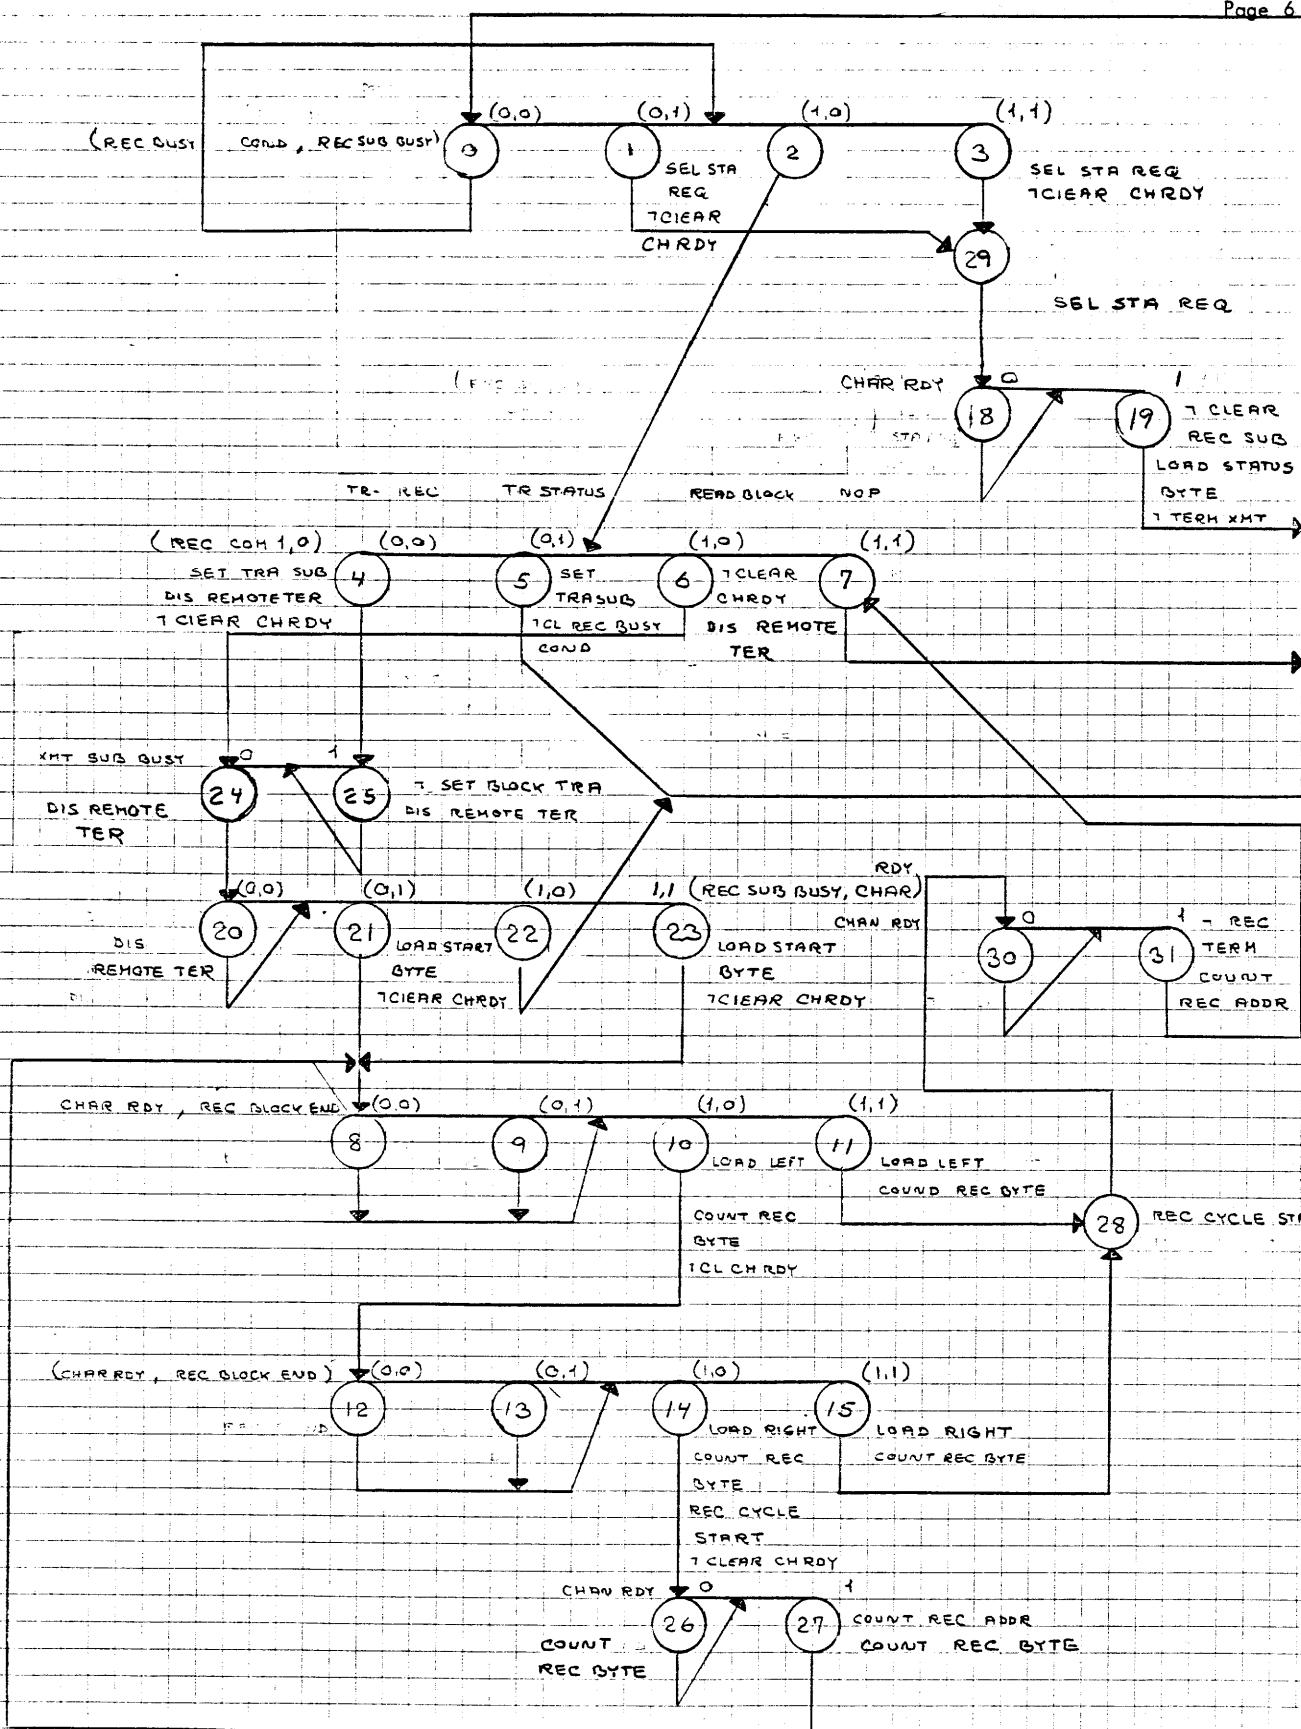 Page 6
(0,0) (0,1) (1,0) (1,1)
(REC BUSY COND, REC SUB BUSY)
0 1 2 3
SEL STA
REQ
¬CLEAR
CHRDY
SEL STA REQ
¬CLEAR CHRDY
29
SEL STA REQ
CHAR RDY 0 1
18 19
¬ CLEAR
REC SUB
LOAD STATUS
BYTE
¬ TERM XMT
TR- REC TR STATUS READ BLOCK NOP
(REC COM 1,0) (0,0) (0,1) (1,0) (1,1)
4 5 6 7
SET TRA SUB
DIS REMOTE TER
¬ CLEAR CHRDY
SET
TRASUB
¬CL REC BUSY
COND
¬CLEAR
CHRDY
DIS REMOTE
TER
XMT SUB BUSY 0 1
24 25
DIS REMOTE
TER
¬ SET BLOCK TRA
DIS REMOTE TER
(0,0) (0,1) (1,0) 1,1 (REC SUB BUSY, CHAR)
RDY
20 21 22 23
DIS
REMOTE TER
LOAD START
BYTE
¬CLEAR CHRDY
LOAD START
BYTE
¬CLEAR CHRDY
CHAN RDY 0 1
30 31
¬ REC
TERM
COUNT
REC ADDR
CHAR RDY, REC BLOCK END (0,0) (0,1) (1,0) (1,1)
8 9 10 11
LOAD LEFT
COUNT REC
BYTE
¬CL CH RDY
LOAD LEFT
COUND REC BYTE
28 REC CYCLE STA
(CHAR RDY, REC BLOCK END) (0,0) (0,1) (1,0) (1,1)
12 13 14 15
LOAD RIGHT
COUNT REC
BYTE
REC CYCLE
START
¬ CLEAR CHRDY
LOAD RIGHT
COUNT REC BYTE
CHAN RDY 0 1
26 27
COUNT
REC BYTE
COUNT REC ADDR
COUNT REC BYTE